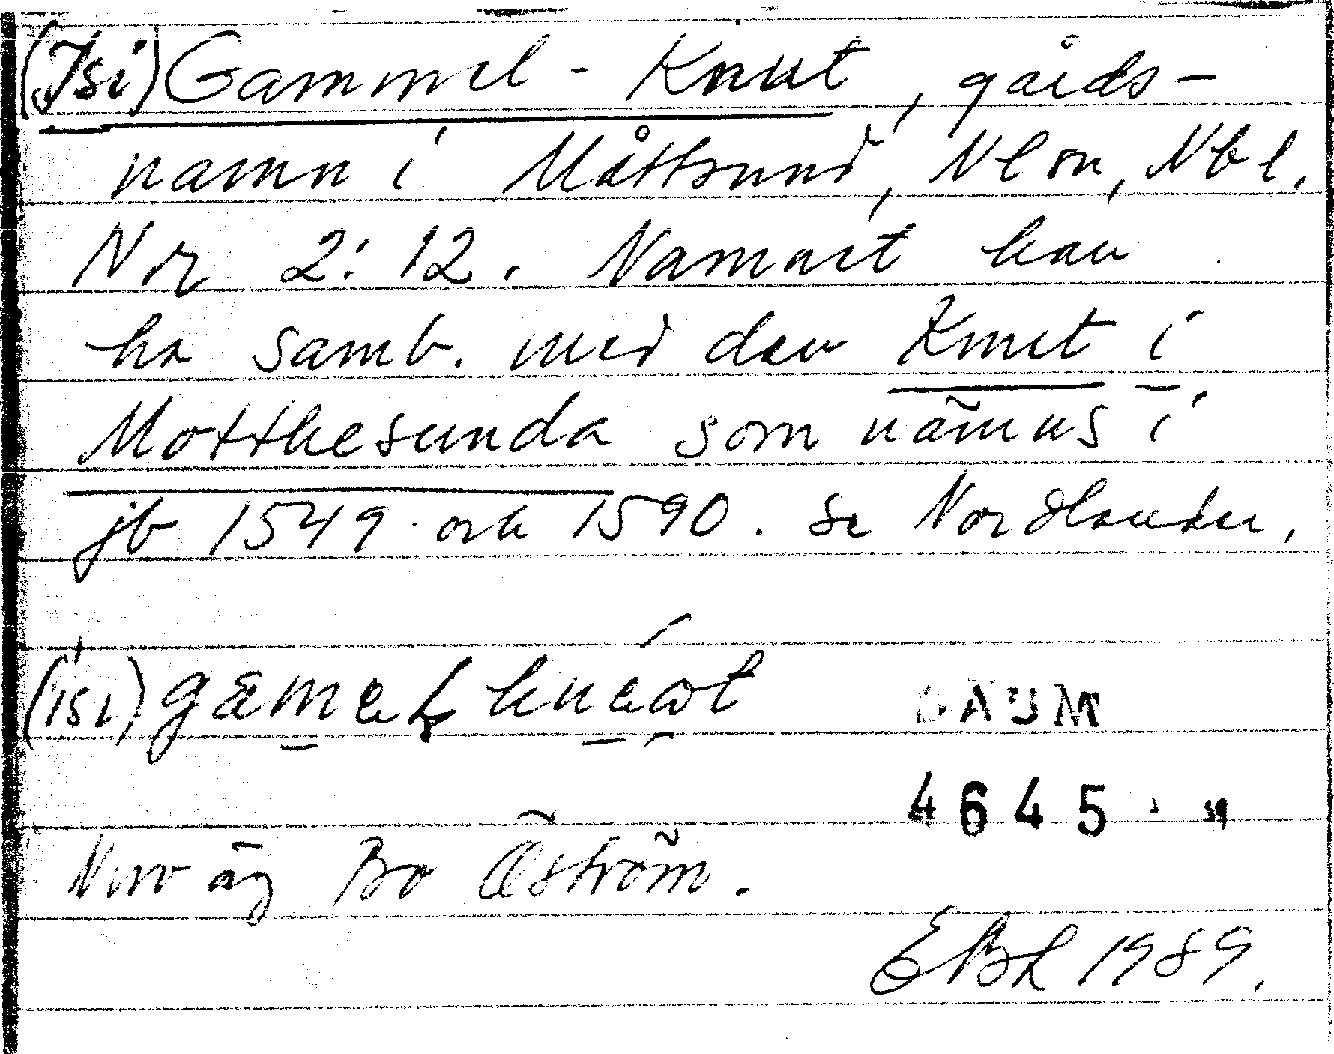 (Isi) Gammel-Knut, gårds-
namn i Måttsund, Nlm, Nbl.
Nr 2:12. Namnet kan
ha samb. med den Knut i
Motthesunda som nämns i
jb 1549 och 1590. Se Nordlander,
(isi) gæmeł knéωt
DAUM
4645
Nuv äg Bo Öström.
EBL 1989.